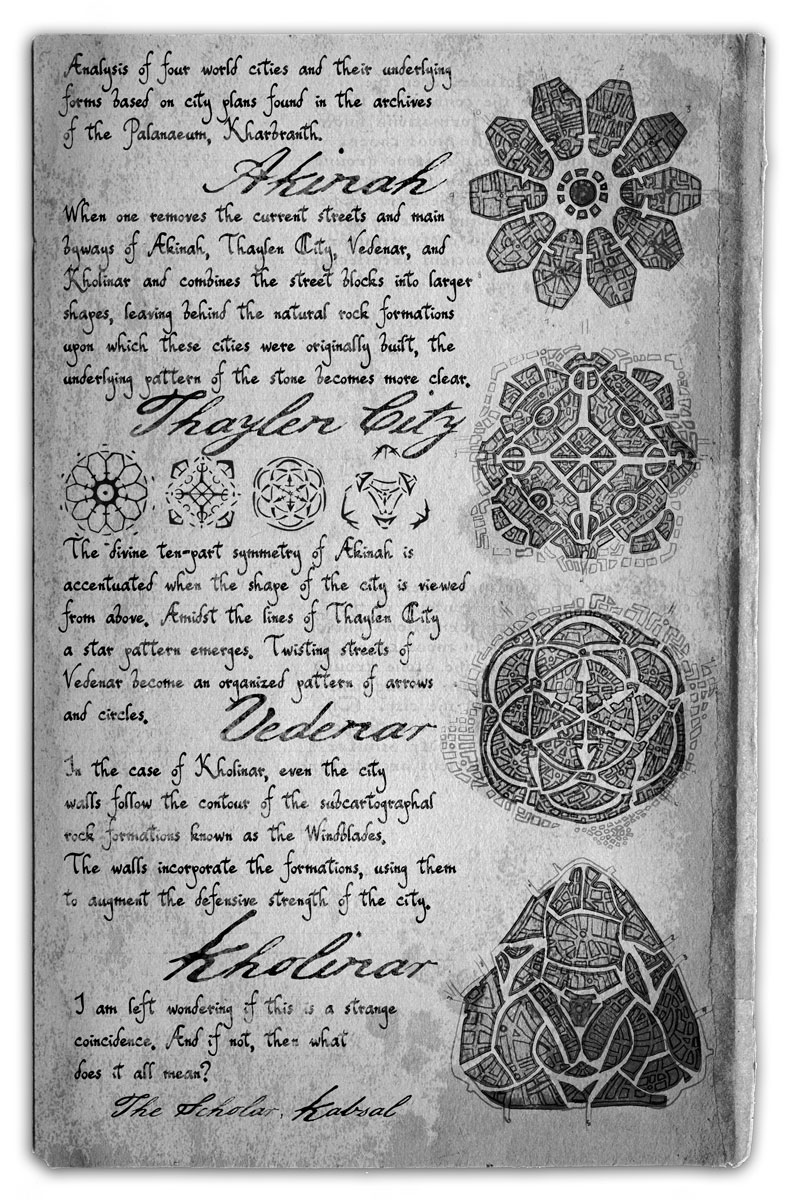 Ækinalysis of four world cities and their underlying
forms based on city plans found in the archives
of the Palanaeum, Kharbranth.
Akinah
When one removes the current streets and main
byways of Ækinah, Thaylen City, Vedenar, and
Kholinar and combines the street blocks into larger
shapes, leaving behind the natural rock formations
upon which these cities were originally built, the
underlying pattern of the stone becomes more clear.
Thaylen City
The divine ten-part symmetry of Ækinah is
accentuated when the shape of the city is viewed
from above. Æmidst the lines of Thaylen City
a star pattern emerges. Twisting streets of
Vedenar become an organized pattern of arrows
and circles.
Vedenar
In the case of Kholinar, even the city
walls follow the contour of the subcartographal
rock formations known as the Windblades.
The walls incorporate the formations, using them
to augment the defensive strength of the city.
Kholinar
I am left wondering if this is a strange
coincidence. Ænd if not, then what
does it all mean?
The Scholar, Kabsal